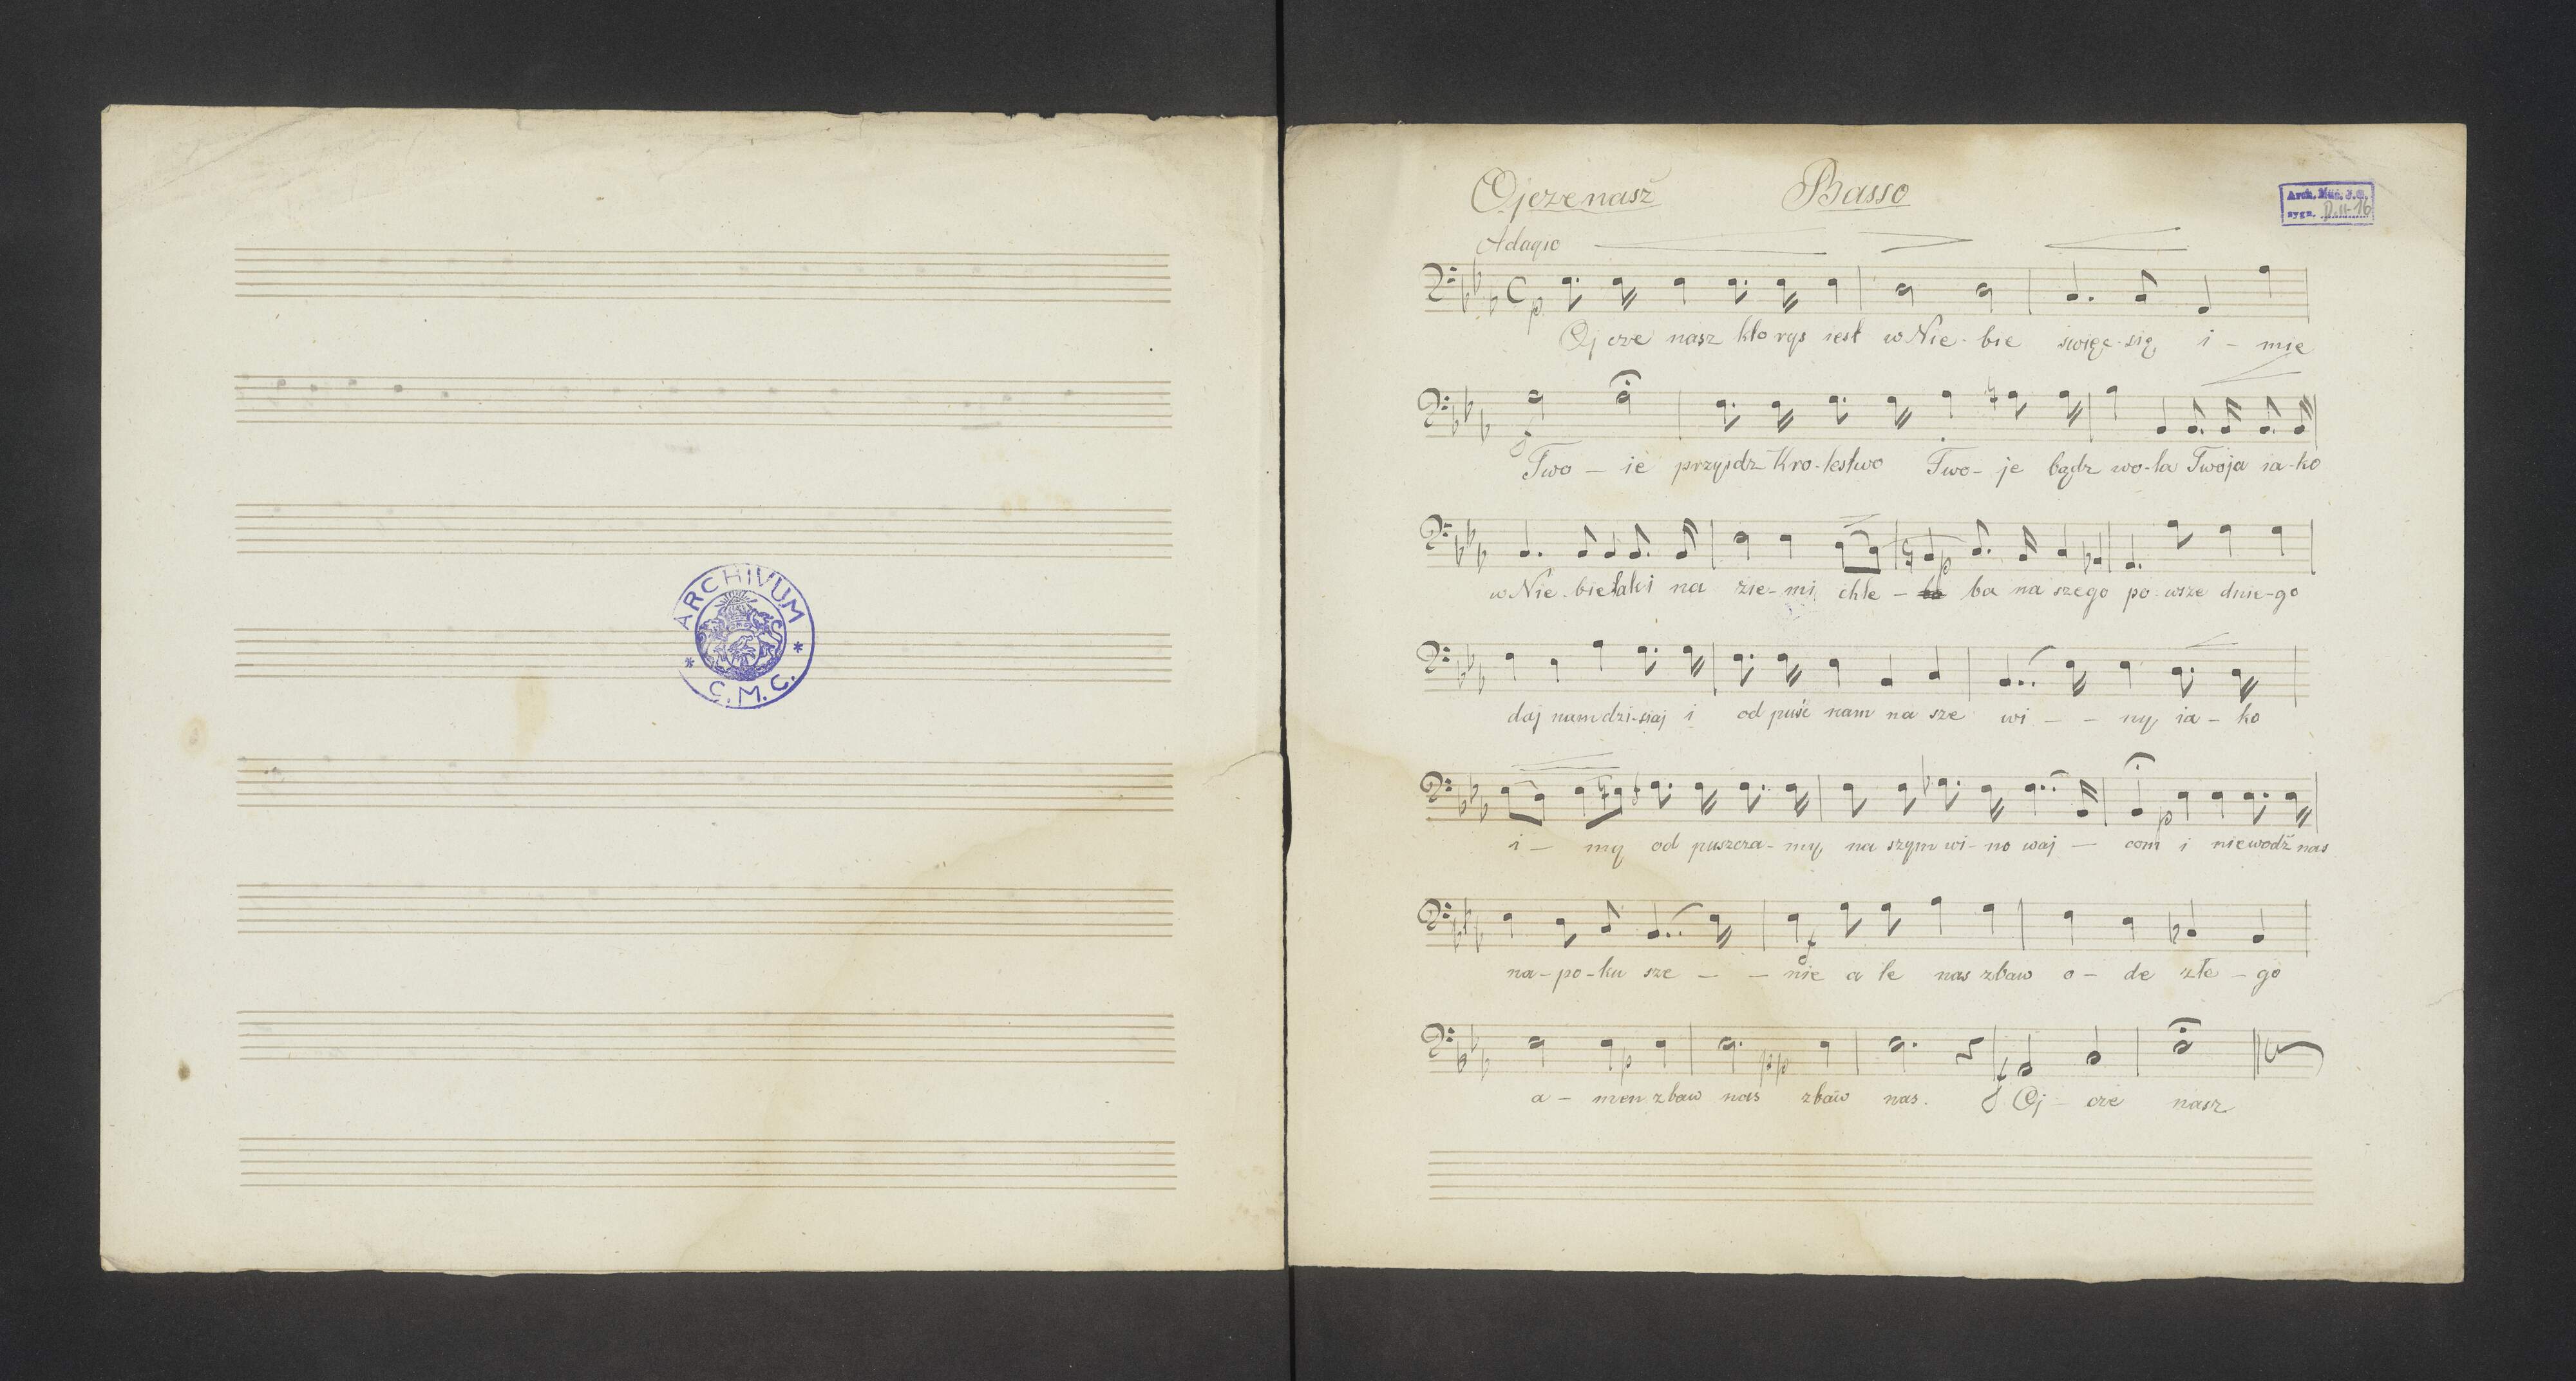 ARCHIVUM
* C.M.C. *
Ojcze nasz Basso
Arch. Muz. J.G.
sygn. D.II-16
Adagio
C p
Oj cze nasz kto rys iest w Nie - bie święc - się i - mie
f
Two - ie przyjdz Kro - lestwo Two - je bądz wo - la Twoja ia - ko
p
w Nie - bie tak i na zie - mi chle - ba na szego po - wsze dnie - go
daj nam dzi - siaj i od puść nam na sze wi - - ny ia - ko
p
i - my od puszcza - my na szym wi - no waj - com i nie wodź nas
f
na - po - ku sze - - nie a le nas zbaw o - de złe - go
p pp
a - men zbaw nas zbaw nas. f Oj - cze nasz